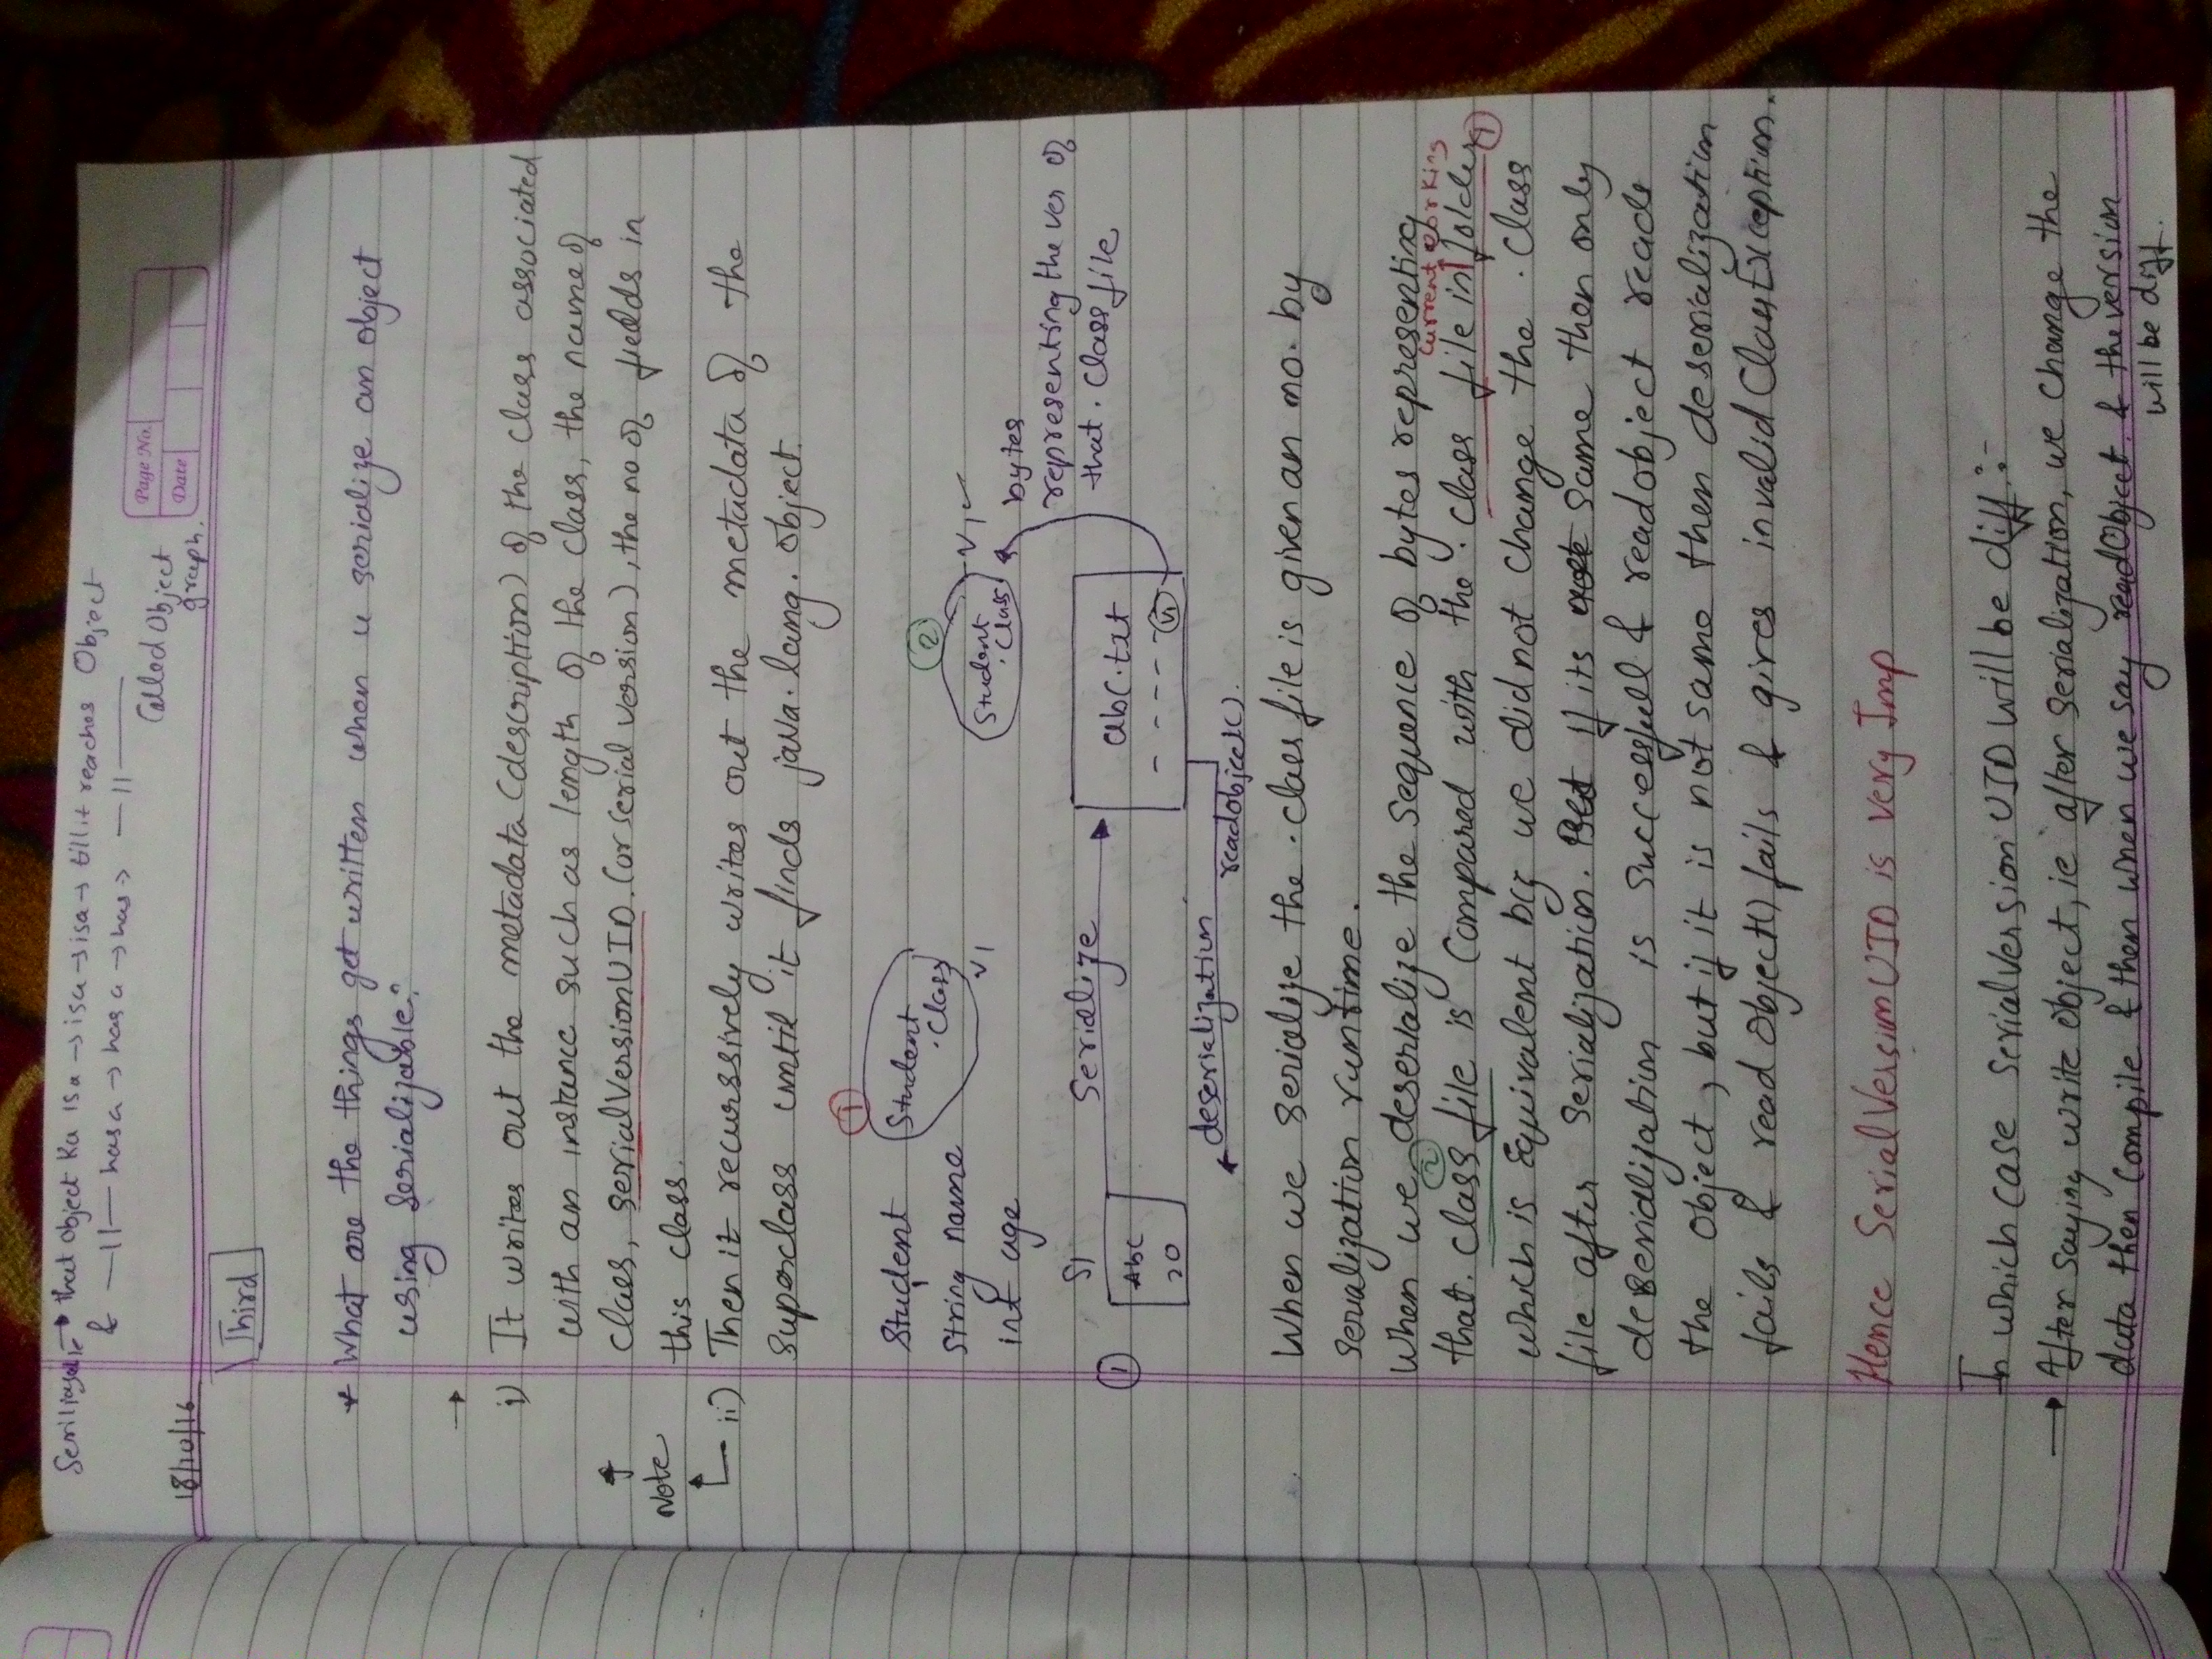 Serilizable → that Object Ka isa → isa → isa → till it reaches Object
& —||— has a → has a → has → —||—
Called Object
graph.
Page No.
Date
18/10/16
Third
* What are the things get written when u serialize an object
using Serializable?
→
i) It writes out the metadata (description) of the class associated
with an instance such as length of the class, the name of
class, serialVersionUID. (or serial version), the no of fields in
this class.
Note
ii) Then it recurssively writes out the metadata of the
superclass until it finds java.lang.object.
1
Student
String name
int age
Student
.Class
V1
2
Student
.Class
V1 ✓
bytes
representing the ver of
that .Class file
S1
1
Abc
20
Serialize
abc.txt
- - - - - V1
deserialization
readobject().
When we serialize the .class file is given an no. by
serialization runtime.
When we deserialize the sequence of bytes representing
2
current working
that .class file is compared with the .class file in folder 1
which is Equivalent bcz we did not change the .Class
file after serialization. But if its not same then only
deserialization is successfull & readobject reads
the object, but if it is not same then deserialization
fails & read Object() fails & gives invalid ClassException.
Hence SerialVersionUID is very Imp
In which case serialversion UID will be diff :-
→ After saying write object, ie after serialization, we change the
data then compile & then when we say readObject. & the version
will be diff.